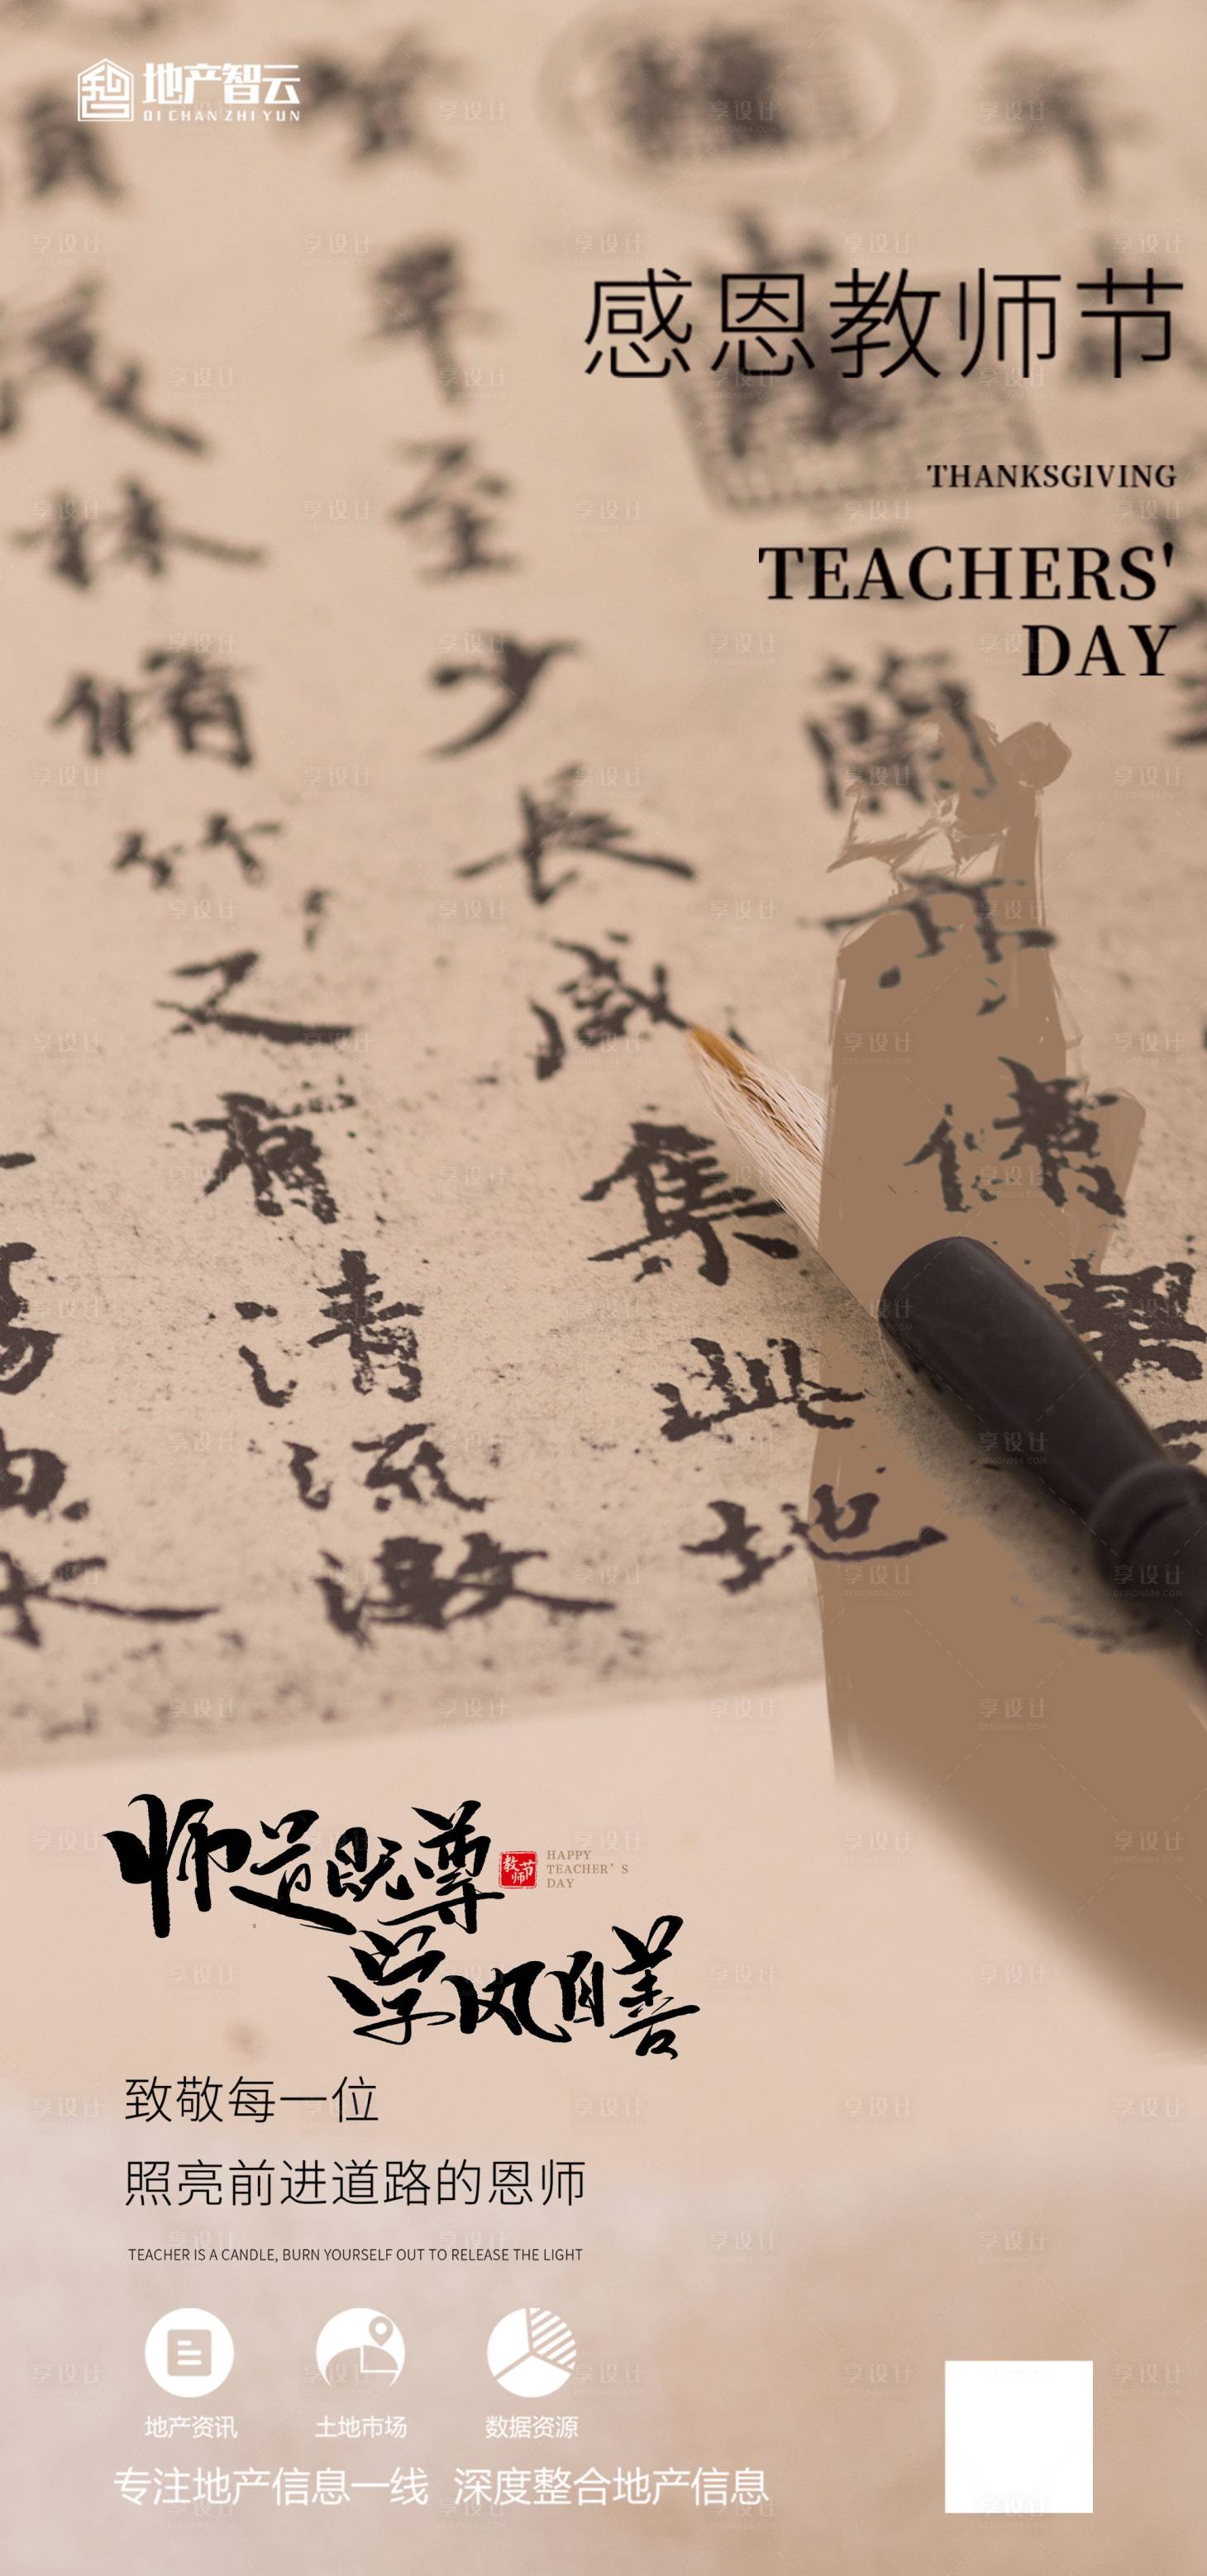 地产智云
DI CHAN ZHI YUN
感恩教师节
THANKSGIVING
TEACHERS'
DAY
少
長
咸
集
此
地
脩
竹
又
有
清
流
激
師道既尊
学风自善
教师节
HAPPY
TEACHER'S
DAY
致敬每一位
照亮前进道路的恩师
TEACHER IS A CANDLE, BURN YOURSELF OUT TO RELEASE THE LIGHT
地产资讯
土地市场
数据资源
专注地产信息一线 深度整合地产信息
享设计
DESIGN006.COM